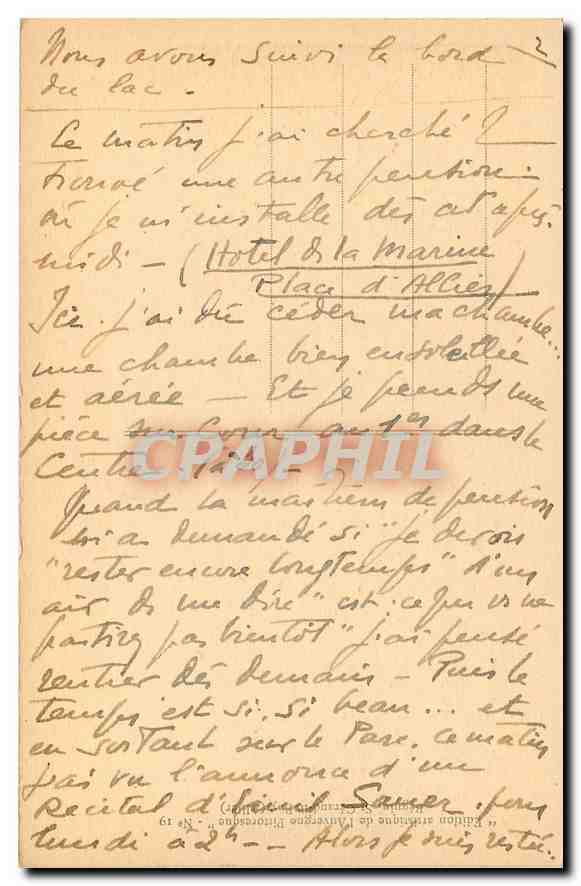 Nous avons suivi le bord 2
du lac.
Ce matin j'ai cherché &
trouvé une autre pension
où je m'installe dès cet après-
midi - (Hotel de la Marine
Place d'Allier)
Ici j'ai dû céder ma chambre...
une chambre bien ensoleillée
et aérée - Et je prends une
pièce sur Cour au 1er dans le
Centre
Quand la maîtresse de pension
m'a demandé si "je devais
"rester encore longtemps" d'un
air de me dire "est-ce que vs ne
partirez pas bientôt" j'ai pensé
rentrer dès demain - Puis le
temps est si, si beau... et
en sortant sur le Parc, ce matin
j'ai vu l'annonce d'un
Récital d'Emil Sauer pour
lundi à 2h - Alors je suis resté.
"Edition artistique de l'Auvergne Pittoresque" - N° 19
CARAPHIL